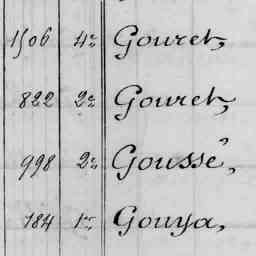 1506 4e Gouret,
822 2e Gouret,
998 2e Goussé,
184 1er Gouya,